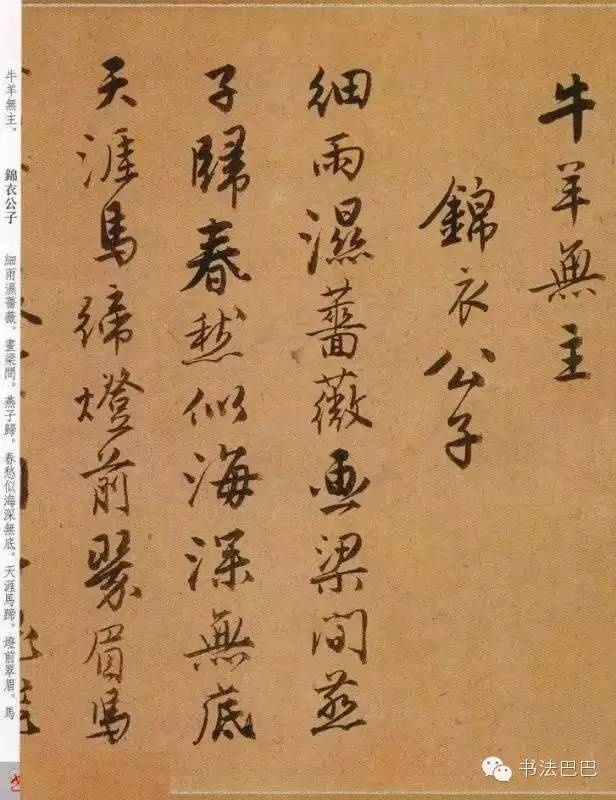 牛羊無主
錦衣公子
細雨濕薔薇畫梁間燕
子歸春愁似海深無底
天涯馬蹄燈前翠眉馬
牛羊無主。 錦衣公子 細雨濕薔薇。畫梁間。燕子歸。春愁似海深無底。天涯馬蹄。燈前翠眉。馬
书法巴巴